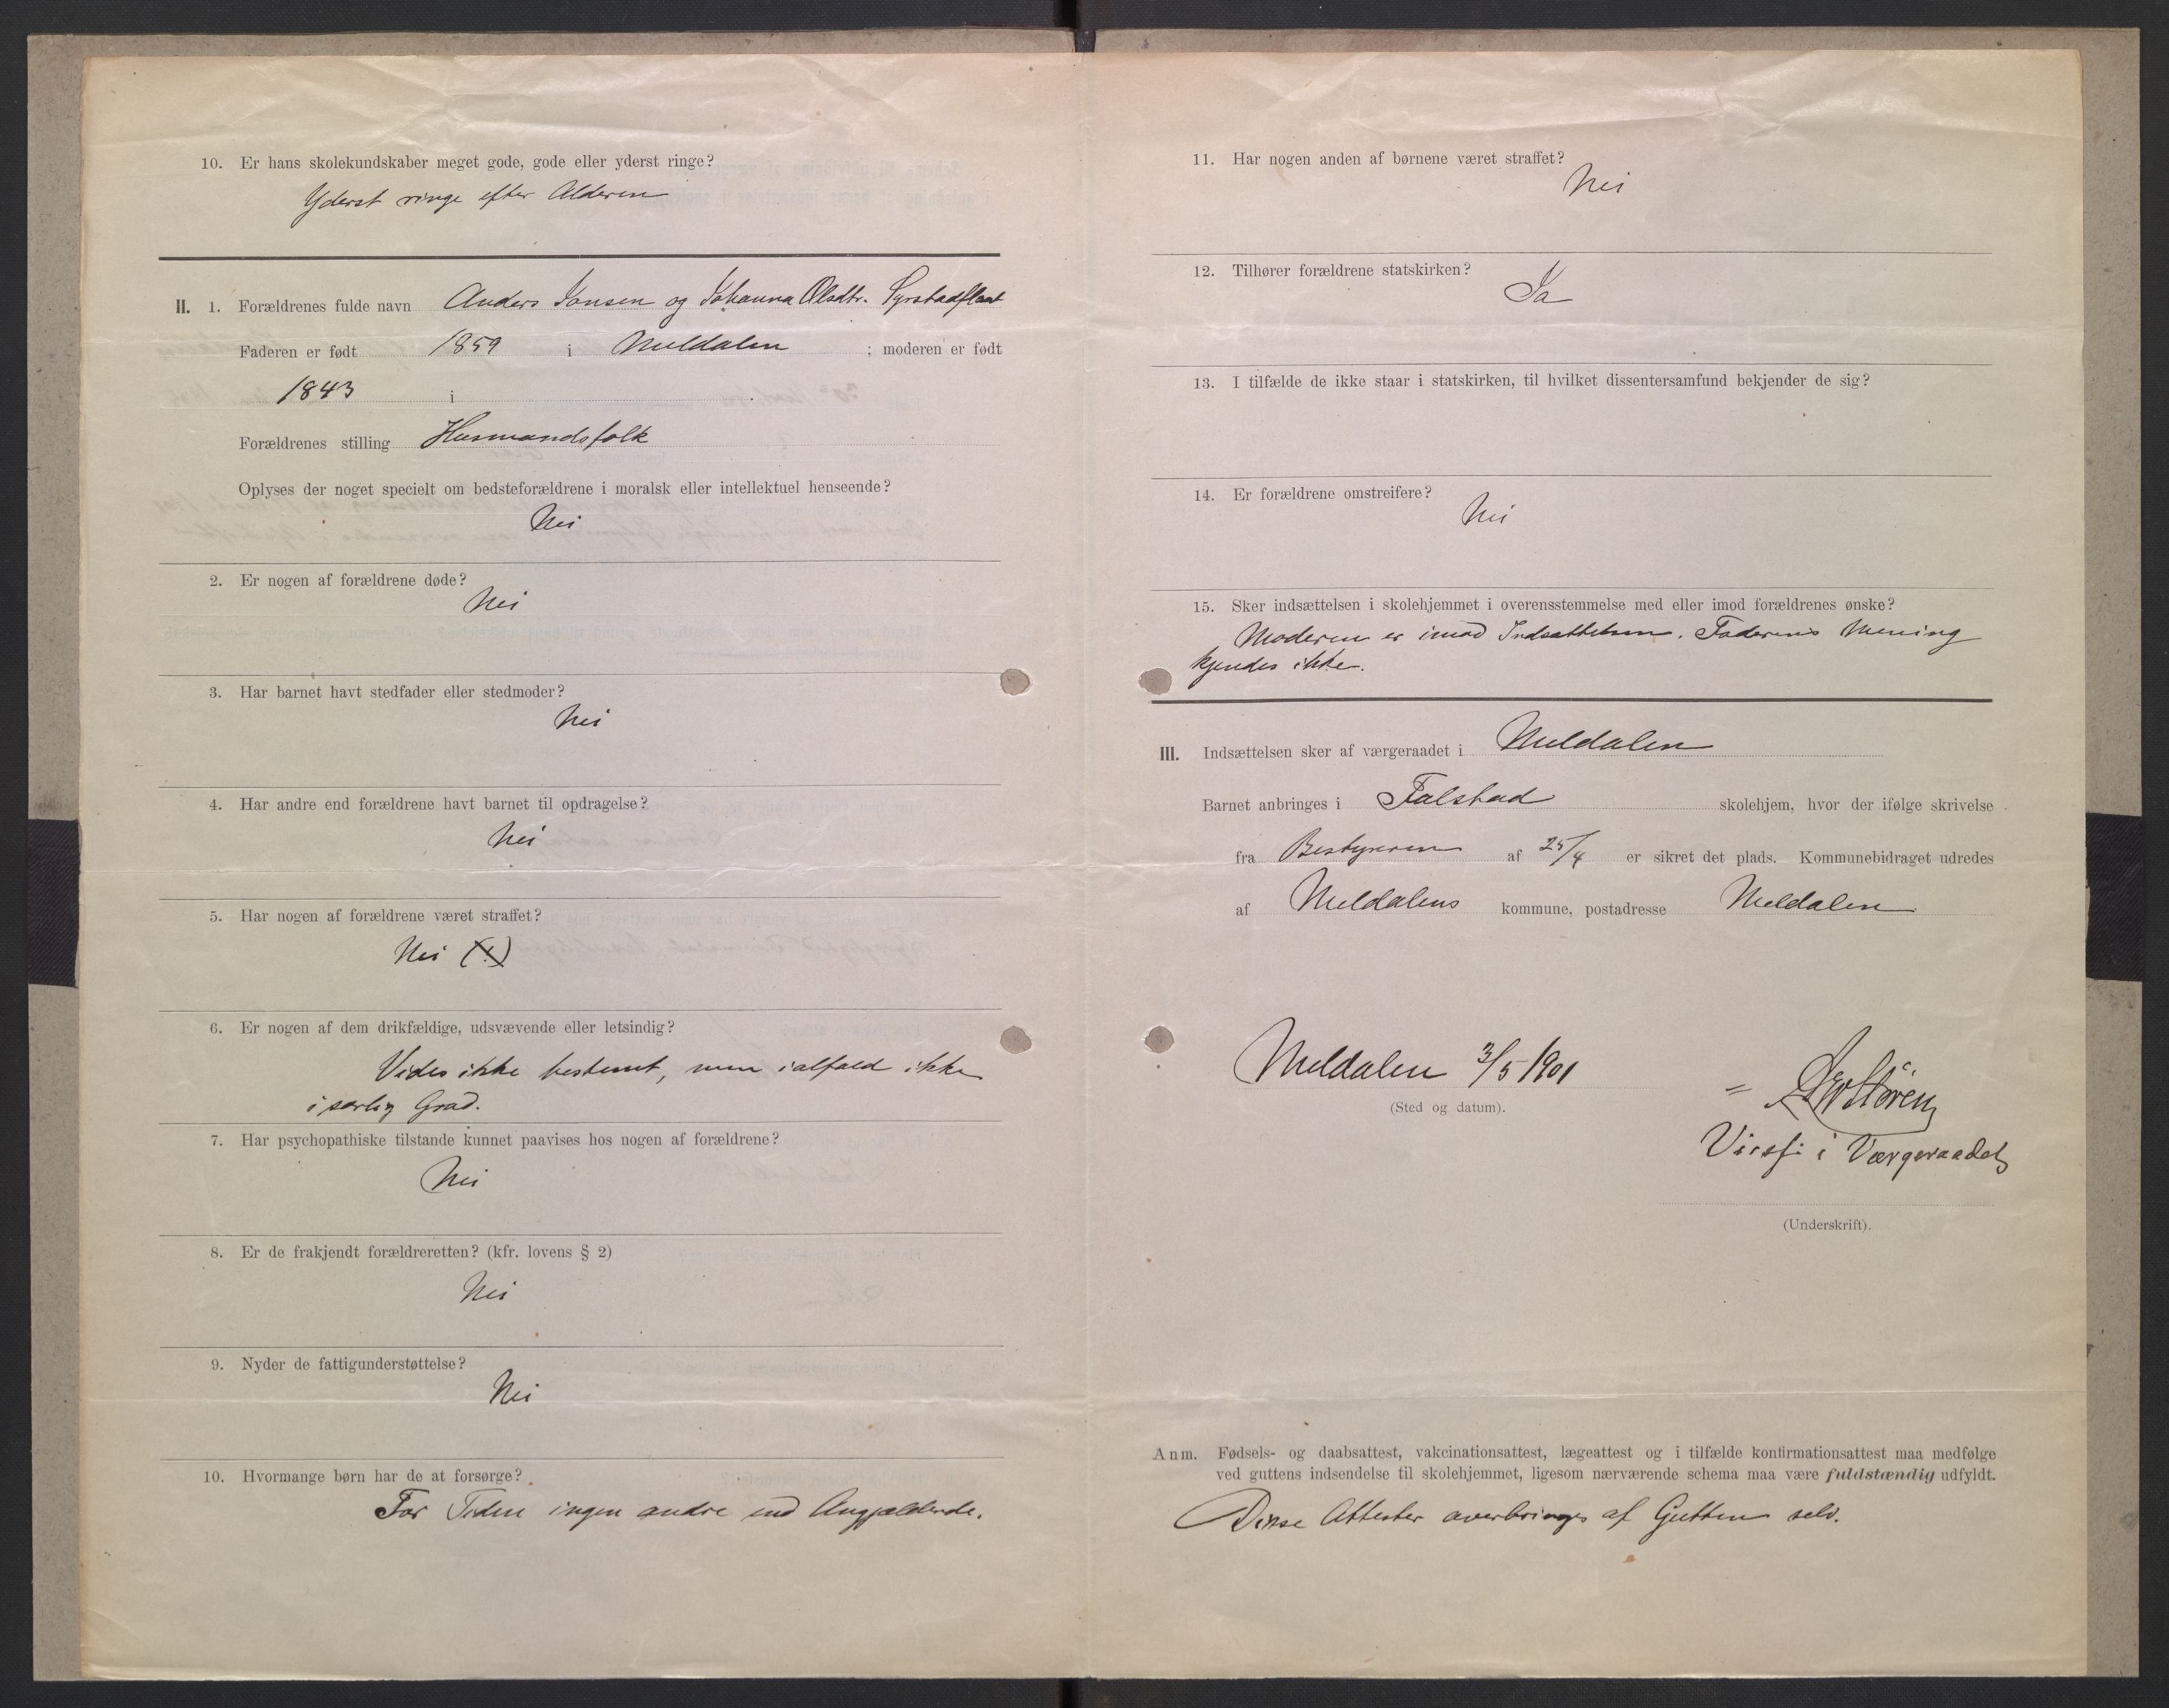 10. Er hans skolekundskaber meget gode, gode eller yderst ringe?
Yderst ringe efter Alderen
II. 1. Forældrenes fulde navn Anders Jonsen og Johanna Olsdtr. Syrstadflaat
Faderen er født 1859 i Meldalen ; moderen er født
1843 i
Forældrenes stilling Husmandsfolk
Oplyses der noget specielt om bedsteforældrene i moralsk eller intellektuel henseende?
Nei
2. Er nogen af forældrene døde?
Nei
3. Har barnet havt stedfader eller stedmoder?
Nei
4. Har andre end forældrene havt barnet til opdragelse?
Nei
5. Har nogen af forældrene været straffet?
Nei
6. Er nogen af dem drikfældige, udsvævende eller letsindig?
Vides ikke bestemt, men ialfald ikke
i særlig Grad.
7. Har psychopathiske tilstande kunnet paavises hos nogen af forældrene?
Nei
8. Er de frakjendt forældreretten? (kfr. lovens § 2)
Nei
9. Nyder de fattigunderstøttelse?
Nei
10. Hvormange børn har de at forsørge?
For Tiden ingen andre end Angjældende.
11. Har nogen anden af børnene været straffet?
Nei
12. Tilhører forældrene statskirken?
Ja
13. I tilfælde de ikke staar i statskirken, til hvilket dissentersamfund bekjender de sig?
14. Er forældrene omstreifere?
Nei
15. Sker indsættelsen i skolehjemmet i overensstemmelse med eller imod forældrenes ønske?
Moderen er imod Indsættelsen. Faderens Mening
kjendes ikke.
III. Indsættelsen sker af værgeraadet i Meldalen
Barnet anbringes i Falstad skolehjem, hvor der ifølge skrivelse
fra Bestyreren af 25/4 er sikret det plads. Kommunebidraget udredes
af Meldalens kommune, postadresse Meldalen
Meldalen 3/5 1901
(Sted og datum).
Støren
i Værgeraadet
(Underskrift).
Anm. Fødsels- og daabsattest, vakcinationsattest, lægeattest og i tilfælde konfirmationsattest maa medfølge
ved guttens indsendelse til skolehjemmet, ligesom nærværende schema maa være fuldstændig udfyldt.
Disse Attester overbringes af Gutten selv.